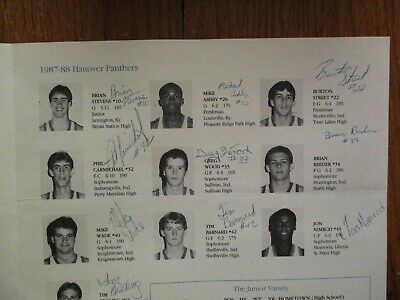 1987-88 Hanover Panthers
BRIAN
STEVENS #10
G 5-11 165
Junior
Lexington, Ky
Bryan Station High
Brian
Stevens
#10
MIKE
ASHBY #26
G 6-2 170
Freshman
Louisville, Ky
Pleasure Ridge Park High
Michael
Ashby
BURTON
STREET #22
F-G 6-4 185
Freshman
Monticello, Ind
Twin Lakes High
Burton
Street
PHIL
CARMICHAEL #32
F-C 6-5 190
Sophomore
Indianapolis, Ind.
Perry Meridian High
GREG
WOOD #33
G-F 6-5 175
Sophomore
Sullivan, Ind
Sullivan High
Greg Wood
#33
BRIAN
REEDER #34
F 6-4 180
Sophomore
Huntington, Ind
North High
Brian Reeder
#34
MIKE
WADE #40
G 6-1 190
Sophomore
Knightstown, Ind
Knightstown High
Mike
Wade
TIM
BARNARD #42
G-F 6-3 175
Sophomore
Shelbyville, Ind
Shelbyville High
Tim
Barnard
#42
JON
NIMROD #45
C-F 6-6 195
Sophomore
Monrovia, Liberia
St Peter High
Jon Nimrod
The Junior Varsity
POS HT WT YR HOMETOWN (High School)